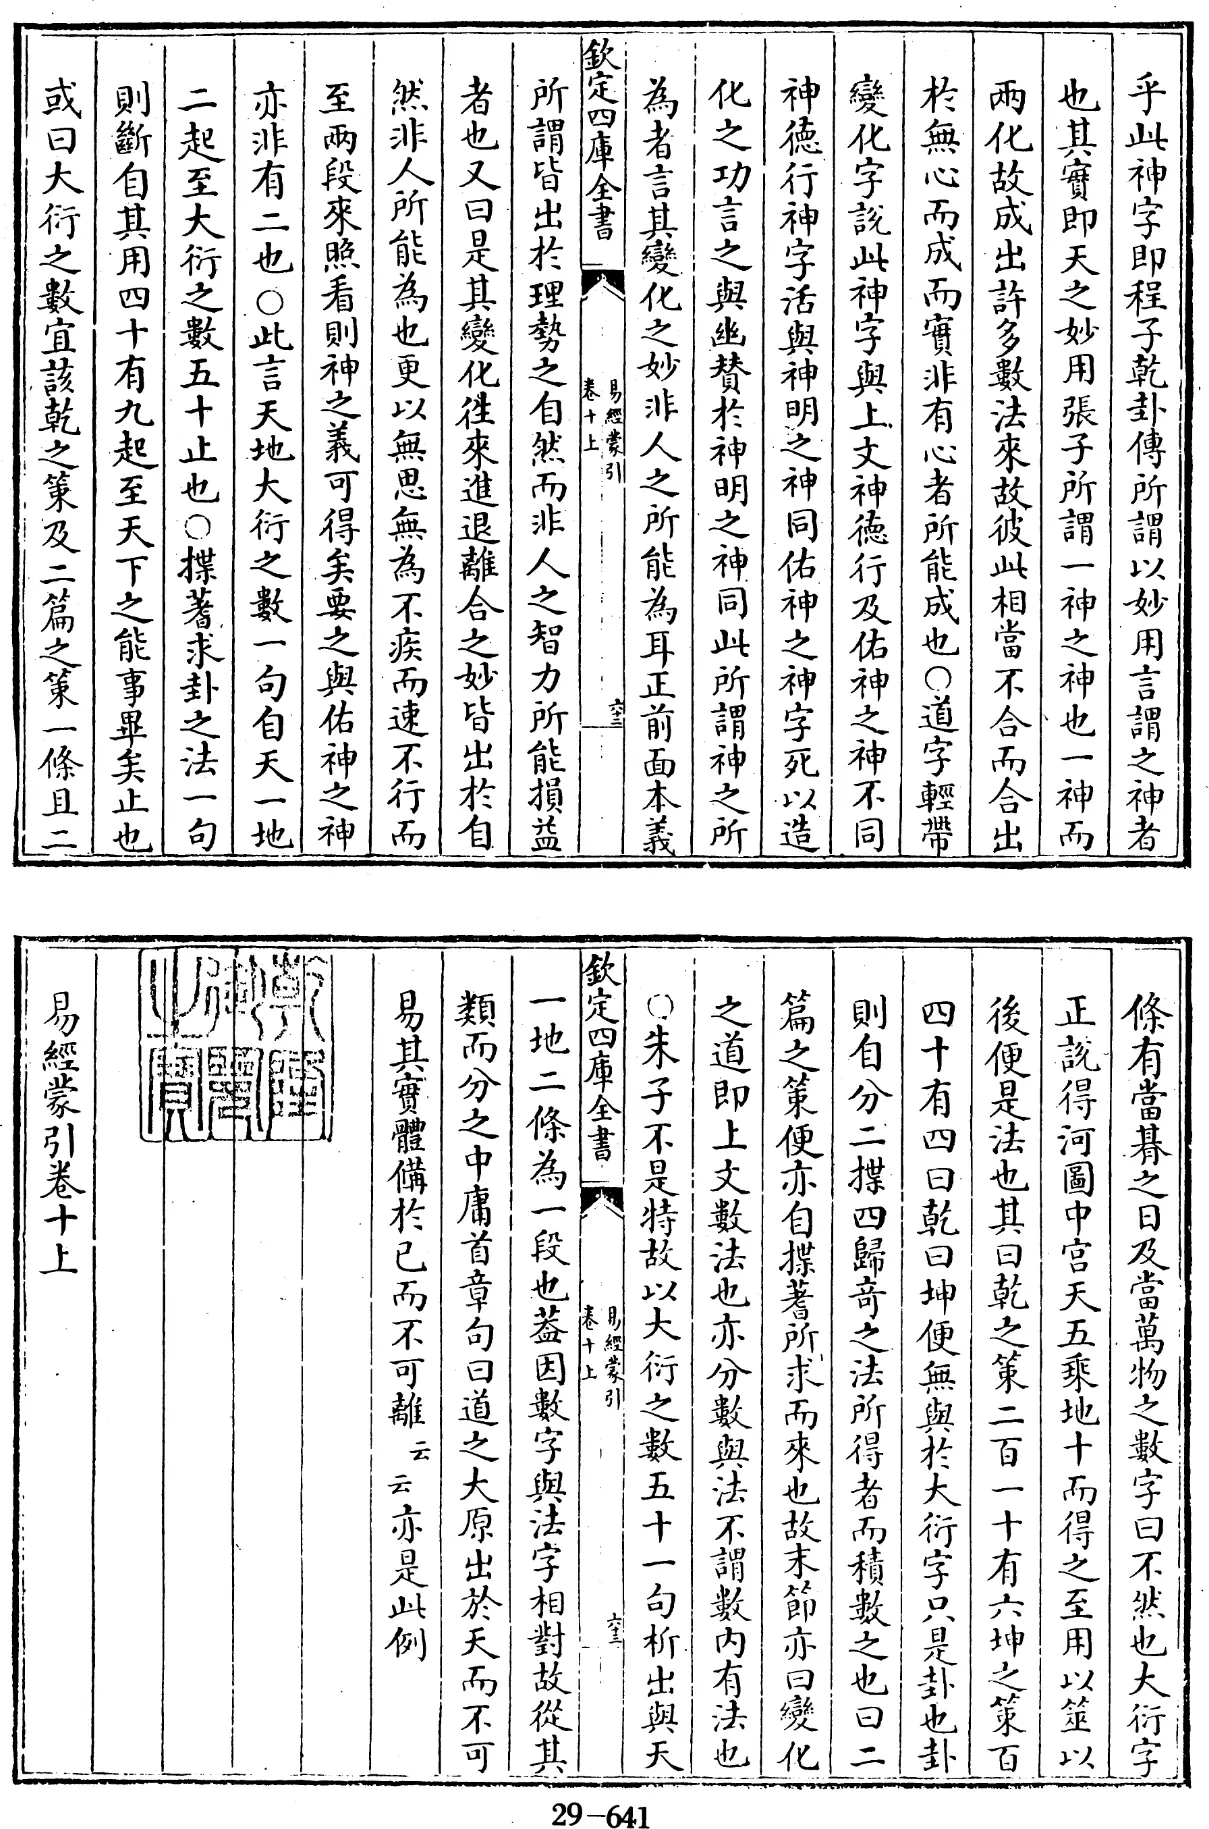 乎此神字即程子乾卦傳所謂以妙用言謂之神者
也其實即天之妙用張子所謂一神之神也一神而
兩化故成出許多數法來故彼此相當不合而合出
於無心而成而實非有心者所能成也○道字輕帶
變化字說此神字與上文神德行及佑神之神不同
神德行神字活與神明之神同佑神之神字死以造
化之功言之與幽贊於神明之神同此所謂神之所
為者言其變化之妙非人之所能為耳正前面本義
欽定四庫全書
易經蒙引
卷十上
六三
所謂皆出於理勢之自然而非人之智力所能損益
者也又曰是其變化徃來進退離合之妙皆出於自
然非人所能為也更以無思無為不疾而速不行而
至兩段來照看則神之義可得矣要之與佑神之神
亦非有二也○此言天地大衍之數一句自天一地
二起至大衍之數五十止也○揲蓍求卦之法一句
則斷自其用四十有九起至天下之能事畢矣止也
或曰大衍之數宜該乾之策及二篇之策一條且二
條有當朞之日及當萬物之數字曰不然也大衍字
正說得河圖中宮天五乘地十而得之至用以筮以
後便是法也其曰乾之策二百一十有六坤之策百
四十有四曰乾曰坤便無與於大衍字只是卦也卦
則自分二揲四歸奇之法所得者而積數之也曰二
篇之策便亦自揲蓍所求而來也故末節亦曰變化
之道即上文數法也亦分數與法不謂數內有法也
○朱子不是特故以大衍之數五十一句析出與天
欽定四庫全書
易經蒙引
卷十上
六三
一地二條為一段也葢因數字與法字相對故從其
類而分之中庸首章句曰道之大原出於天而不可
易其實體備於已而不可離云云亦是此例
乾隆御覽之寶
易經蒙引卷十上
29-641